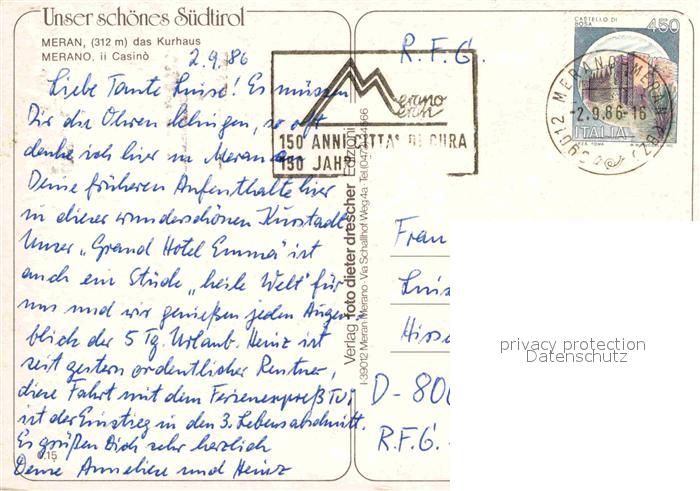 Unser schönes Südtirol
MERAN, (312 m) das Kurhaus
MERANO, il Casinò
2.9.86
Liebe Tante Luise! Es müssen
Dir die Ohren klingen, so oft
denke ich hier in Meran an
Deine früheren Aufenthalte hier
in dieser wunderschönen Kurstadt.
Unser "Grand Hotel Emma" ist
auch ein Stück "heile Welt" für
uns und wir genießen jeden Augen-
blick der 5 Tg. Urlaub. Heinz ist
seit gestern ordentlicher Rentner,
diese Fahrt mit dem Ferienexpreß TUI
ist der Einstieg in den 3. Lebensabschnitt.
Es grüßen Dich sehr herzlich
Deine Anneliese und Heinz
0.15
Verlag foto dieter drescher Edizioni
I-39012 Meran/Merano - Via Schallhof Weg 4a - Tel.
R.F.G.
Merano
Meran
150 ANNI CITTA' DI CURA
150 JAHRE
CASTELLO DI
BOSA
450
ITALIA
39012 MERANO MERAN (BZ)
-2.9.86-16
Frau
Luis
Hirs
D-800
R.F.G.
privacy protection
Datenschutz